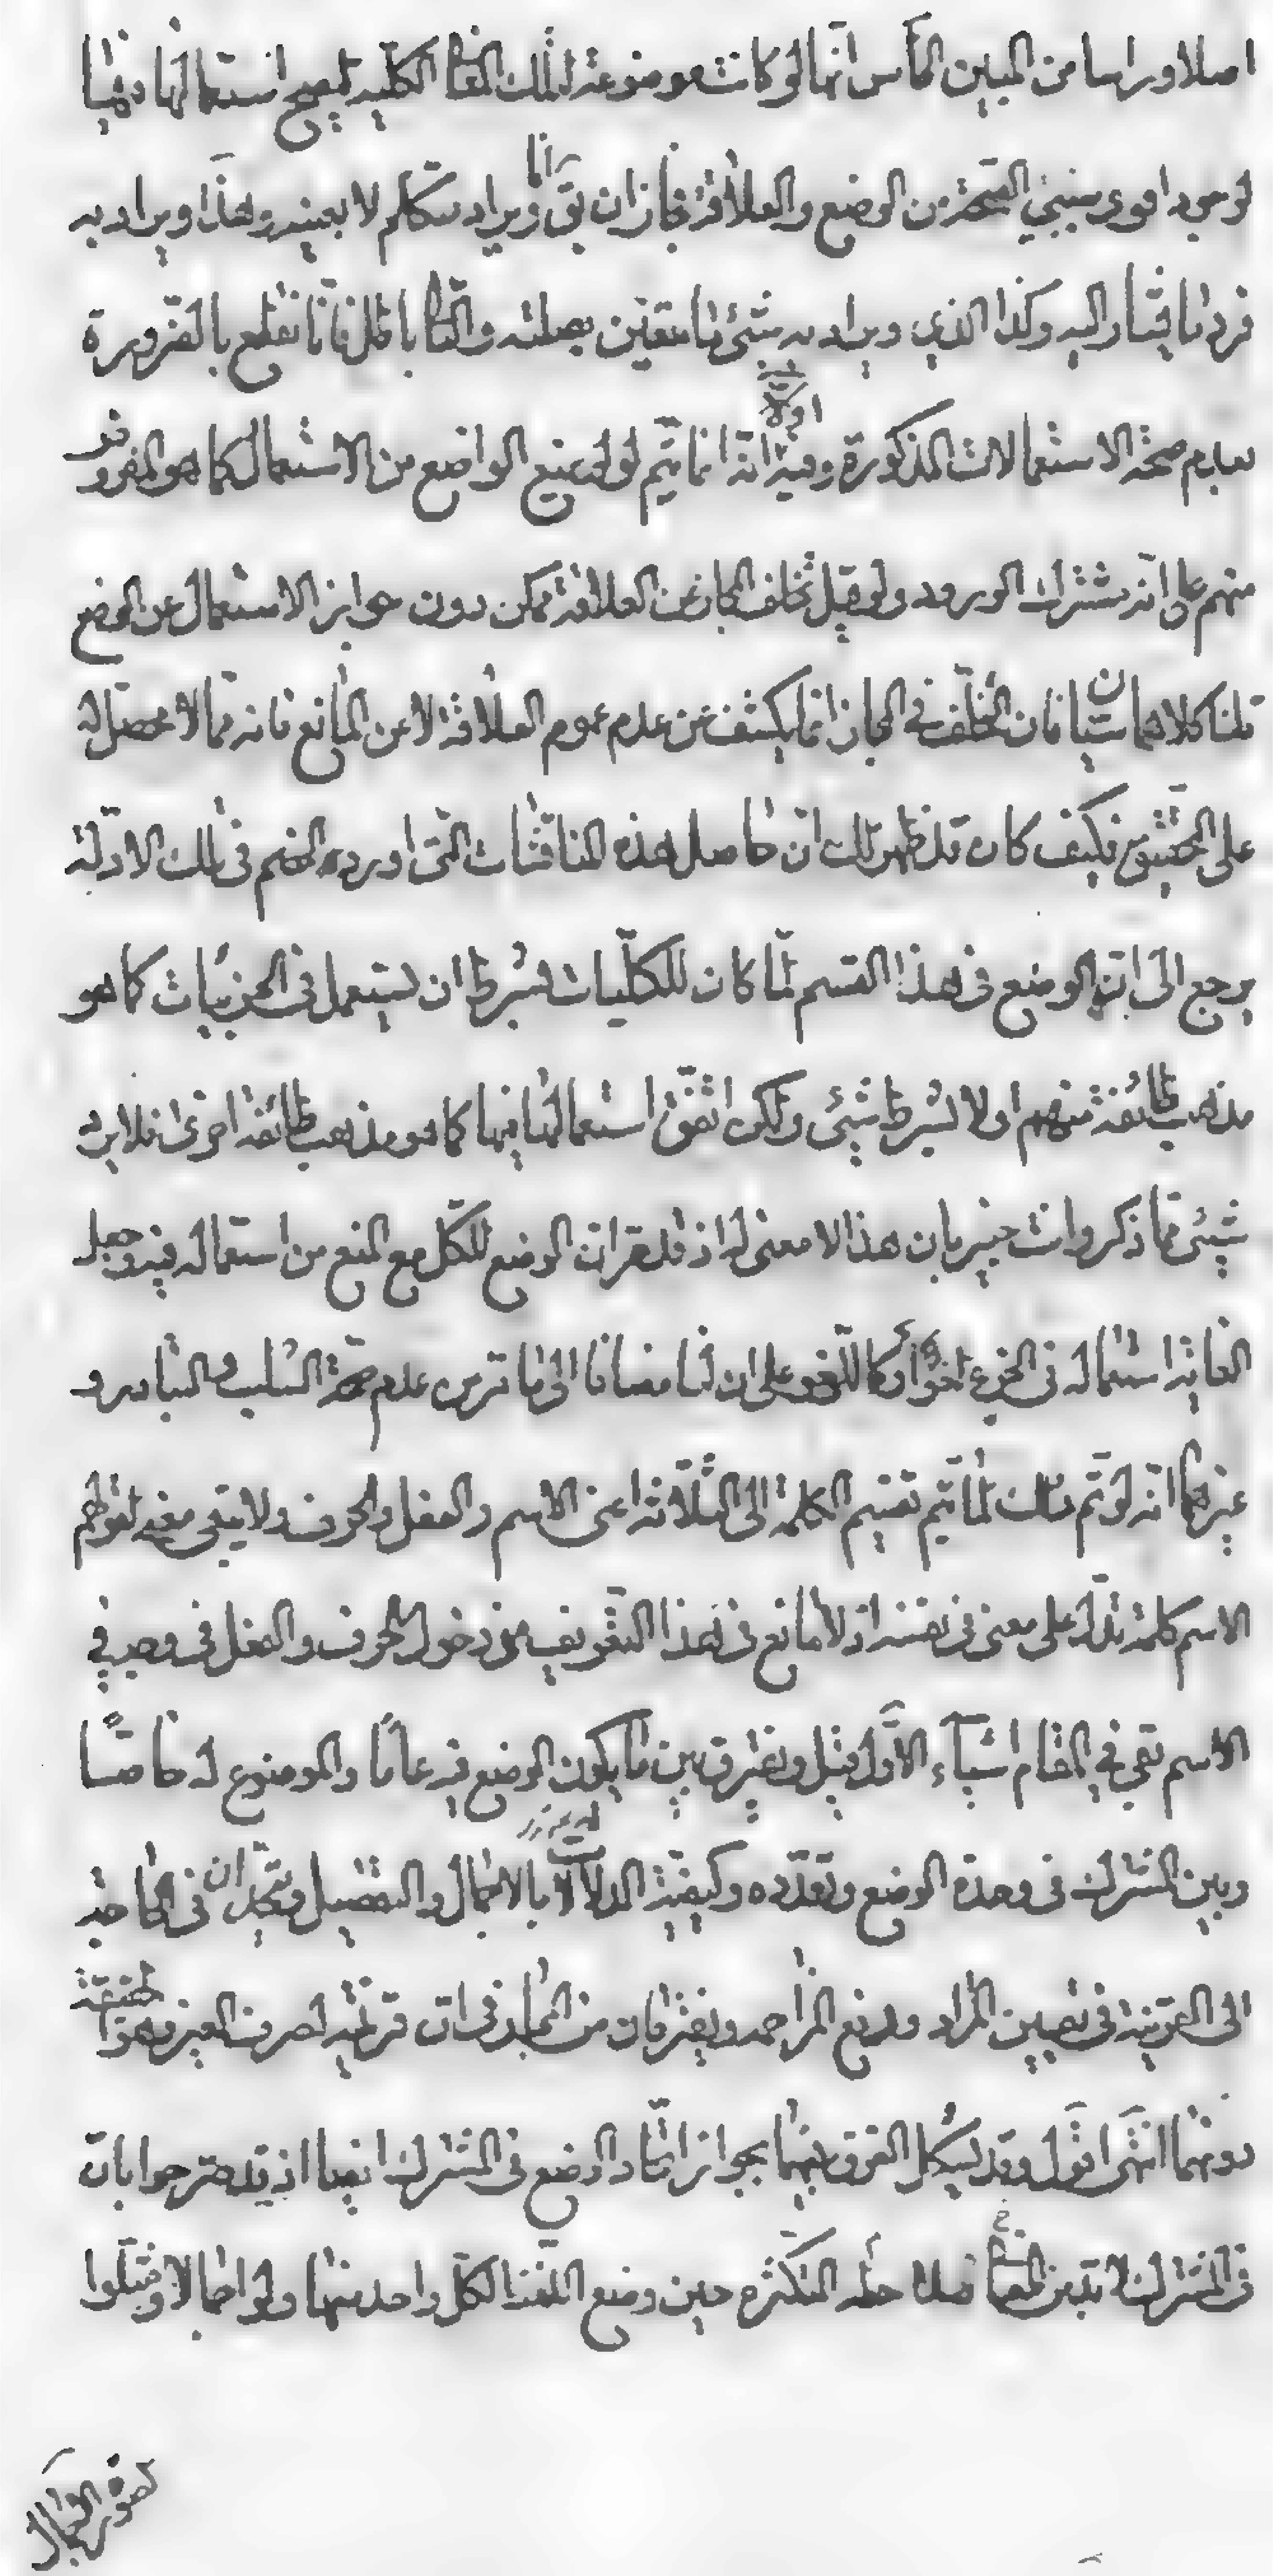 اصلا وراسا من المبين الخامس انها لو كانت موضوعة لتلك المفا الكلية لصح استعمالها فيها
لوجود اقوى سببي الصحة من الوضع والعلاقة فجاز ان يق انا ويراد متكلم لا بعينه وهذا ويراد به
فرد ما يشار اليه وكذا الذي ويراد به شئ ما متعين بصلته والتالي باطل فانا نقطع بالضرورة
بعدم صحة الاستعمالات المذكورة وفيه اولا انه انما يتم لو لم يمنع الواضع من الاستعمال كما هو المفروض
منهم على انه مشترك الورود ولو قيل تخلف المجاز عن العلاقة ممكن دون جواز الاستعمال عن الوضع
قلنا كلاهما سيان فان التخلف في المجاز انما يكشف عن عدم عموم العلاقة لا عن المانع فانه مما لا محصل له
على التحقيق فكيف كان قد ظهر لك ان حاصل هذه المناقشات التي اورده الخصم في تلك الادلة
يرجع الى ان الوضع في هذا القسم لما كان للكليات بشرط ان يستعمل في الجزئيات كما هو
مذهب طائفة منهم او لا بشرط شيئ ولكن اتفق استعمالها فيها كما هو مذهب طائفة اخرى فلا يرد
شيئ مما ذكر وانت خبير بان هذا لا معنى له اذ قد مر ان الوضع للكل مع المنع من استعماله فيه وجعل
الفائدة استعماله في الجزئي كاللغو على ان لنا مضافا الى ما مر من عدم صحة السلب والتبادر و
غيرهما انه لو تم ذلك لما تم تقسيم الكلمة الى الثلاثة اعنى الاسم والفعل والحرف ولا يبقى معنى لقولهم
الاسم كلمة تدل على معنى في نفسه اذ لا مانع في هذا التعريف من دخول الحرف والفعل فيه وحده في
الاسم بقي في المقام اشياء الاول قيل ويفترق بين ما يكون الوضع فيه عاما والموضوع له خاصا
وبين المشترك في وحدة الوضع وتعدده وكيفية الدلالة بالاجمال والتفصيل ويتحدان في الحاجة
الى القرينة في تعيين المراد ودفع المزاحم ويفترقان من المجاز في ان قرينته لصرف الغير وهو حقيقة
دونهما انتهى اقول وقد يشكل الفرق بينهما بجواز اتحاد الوضع في المشترك ايضا اذ قد صرحوا بان
في المشترك لا بد من المعا حين وضع اللفظ لكل واحد منها ولو اجمالا ومثلوا